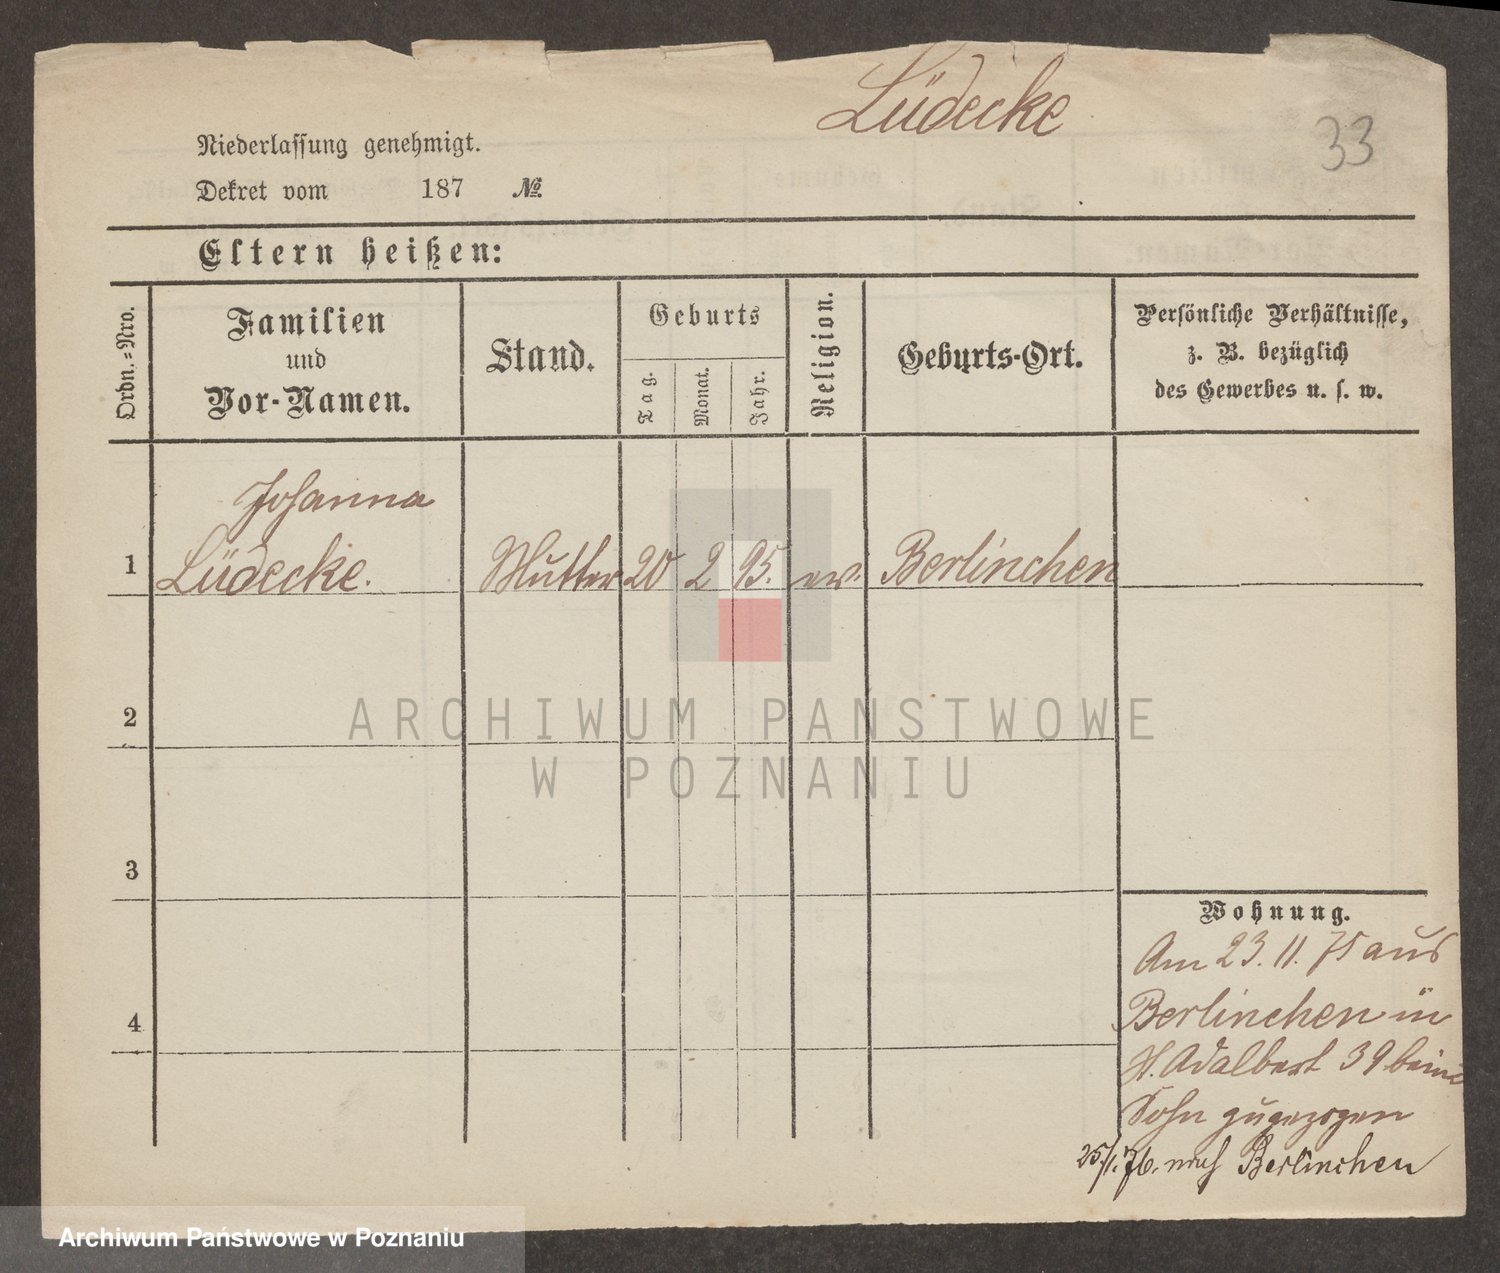 Lüdecke
33
Niederlassung genehmigt.
Dekret vom 187 №
Eltern heißen:
Ordn.=Nro.
Familien
und
Vor-Namen.
Stand.
Geburts
Tag.
Monat.
Jahr.
Religion.
Geburts-Ort.
Persönliche Verhältnisse,
z. B. bezüglich
des Gewerbes u. s. w.
Johanna
1 Lüdecke. Mutter 20 2 95. ev. Berlinchen
2
ARCHIWUM PAŃSTWOWE
W POZNANIU
3
Wohnung.
Am 23. 11. 75 aus
Berlinchen in
4
St. Adalbert 39 beim
Sohn zugezogen
25/1. 76. nach Berlinchen
Archiwum Państwowe w Poznaniu